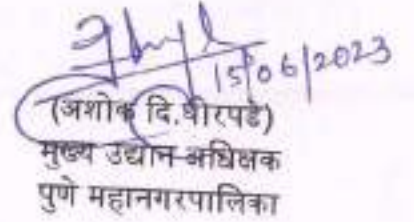 15/06/2023
(अशोक दि.घोरपडे)
मुख्य उद्यान अधिक्षक
पुणे महानगरपालिका